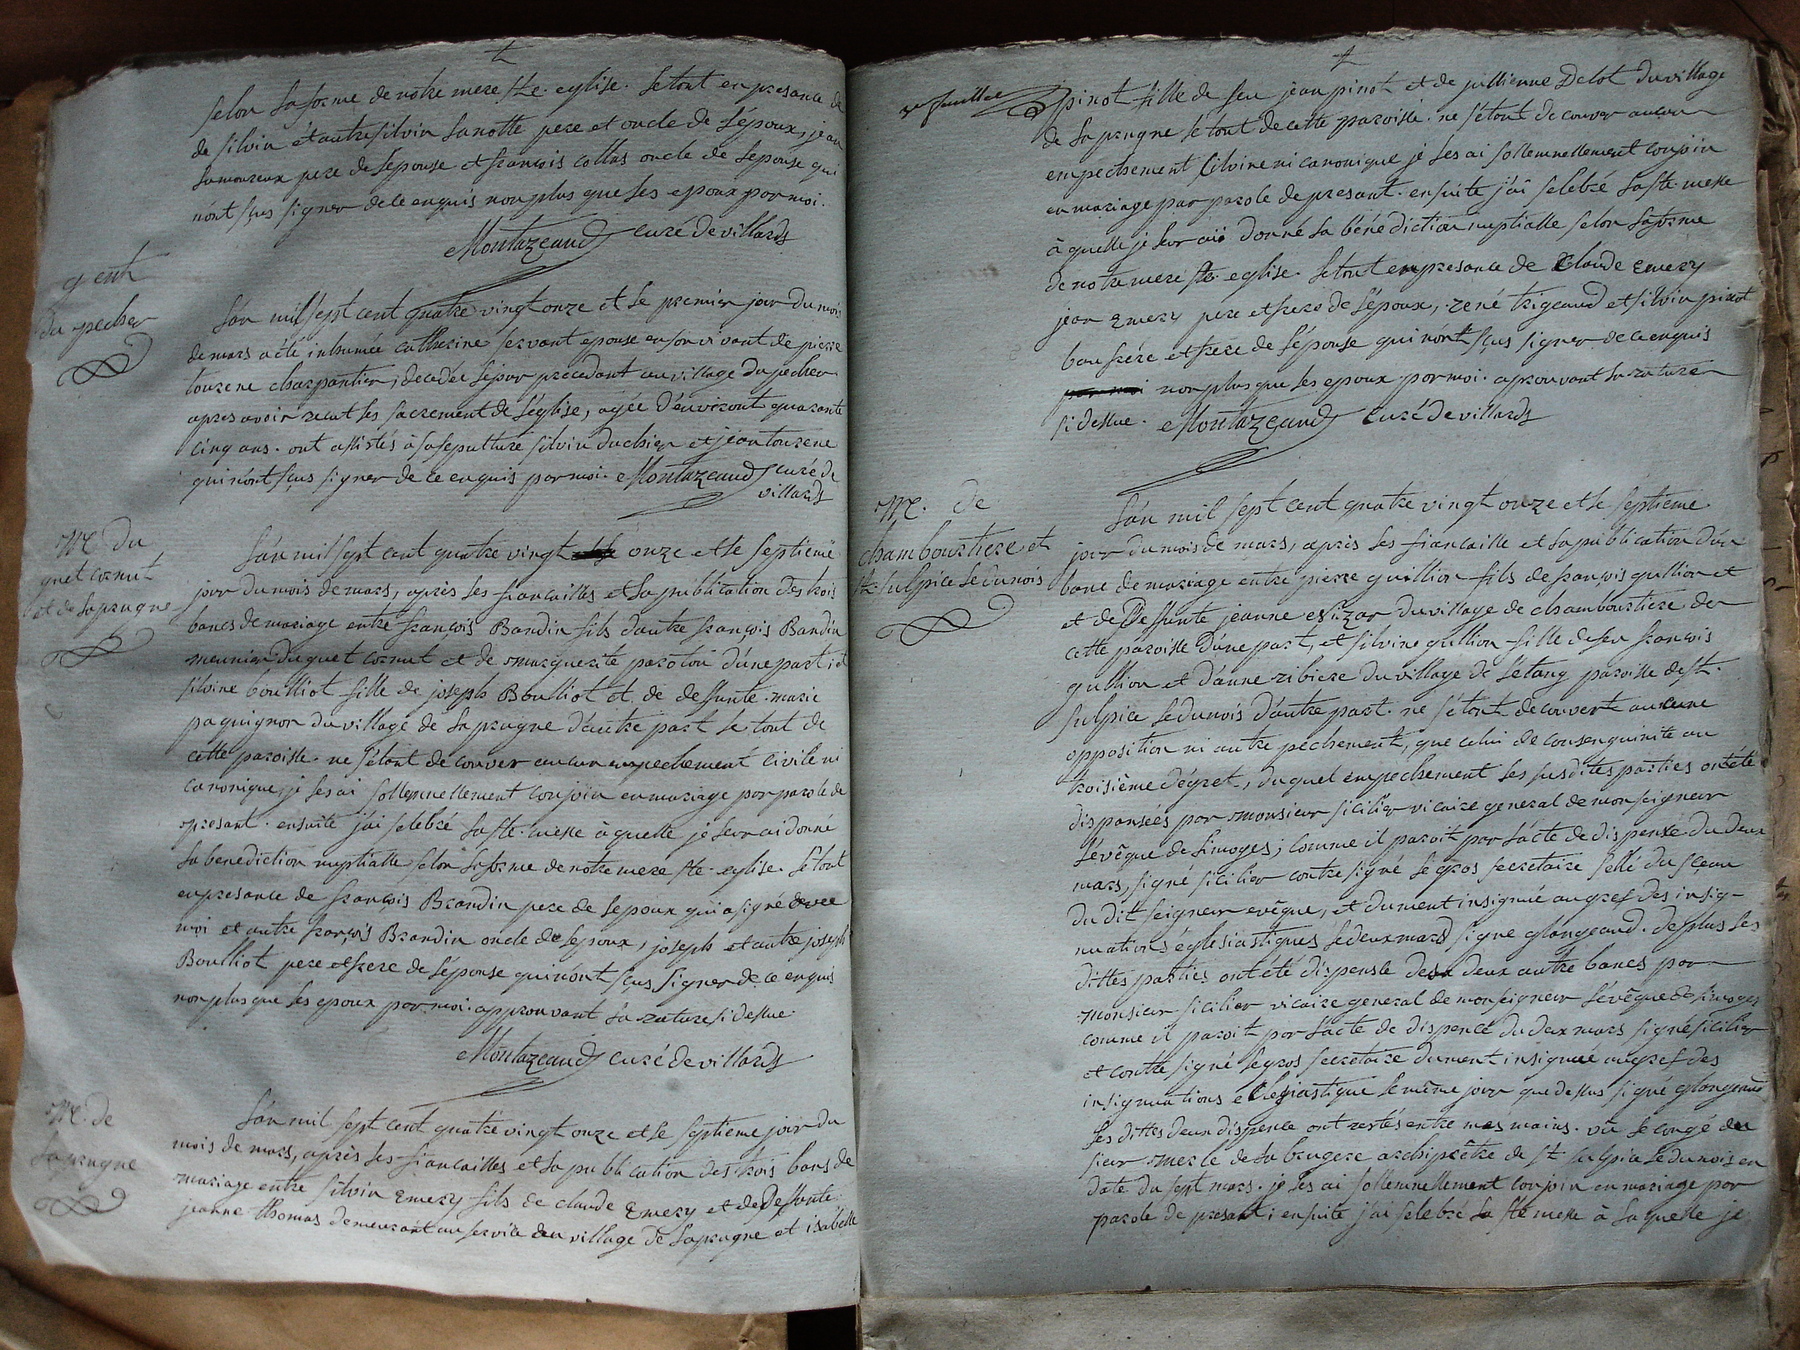 selon la forme de nôtre mere ste. eglise. le tout en presance de
de silvin et autre silvin lanotte pere et oncle de l'époux, jean
lamoureux pere de l'epouse et françois collas oncle de l'epouse qui
n'ont sçus signer de ce enquis non plus que les epoux par moi.
Montazeaud curé de villards
du pecher
l'an mil sept cent quatre vingt onze et le premier jour du mois
de mars a été inhumée catherine servant epouse en son vivant de pierre
touzene charpantier, decedée le jour precedant au village du pecher
apres avoir recut les sacrement de l'église, agée d'environt quarante
cinq ans. ont assistés à sa sepulture silvin duchier et jean touzene
qui n'ont sçus signer de ce enquis par moi. Montazeaud curé de
villards
M. du
guet cornut
et de laprugne
l'an mil sept cent quatre vingt onze et le septieme
jour du mois de mars, après les fiancailles et la publication des trois
bancs de mariage entre françois Bandin fils d'autre françois Bandin
meunier du guet cornut et de marguerite paroton d'une part; et
silvine boulliot fille de joseph Boulliot et de deffunte marie
paquignon du village de laprugne d'autre part le tout de
cette paroisse. ne s'étant decouver aucun enpechement civile ni
canonique, je les ai sollennellement conjoin en mariage par parole de
presant. ensuite j'ai selebré la ste. messe à quelle je leur ai donné
la benediction nuptialle selon la forme de notre mere ste. eglise. le tout
en presance de françois Brandin pere de l'epoux qui a signé avec
moi et autre françois Brandin oncle de l'epoux, joseph et autre joseph
Boulliot pere et frere de l'épouse qui n'ont sçus signer de ce enquis
non plus que les epoux par moi. approuvant la rature si dessue.
Montazeaud curé de villards
M. de
laprugne
l'an mil sept cent quatre vingt onze et le septieme jour du
mois de mars, après les fiancailles et la publication des trois bans de
mariage entre silvin Emery fils de claude Emery et de deffunte
jeanne thomas demeurant au service au village de laprugne et isabelle
feuillet
pinot fille de feu jean pinot et de jullienne Delot du village
de laprugne le tout de cette paroisse. ne s'étant decouver aucun
empechement silvine ni canonique je les ai sollemnellement conjoin
en mariage par parole de presant. ensuite j'ai selebré la ste. messe
à quelle je leur ai donné la bénédiction nuptialle selon la forme
de notre mere ste. eglise. le tout en presance de Claude Emery
jean Emery pere et frere de l'époux, rené trigeaud et silvin pinot
beau frére et frere de l'épouse qui n'ont sçus signer de ce enquis
non plus que les epoux par moi. aprouvant la rature
si dessue. Montazeaud curé de villards
M. de
chamboursiere et
st. sulpice le dunois
l'an mil sept cent quatre vingt onze et le septieme
jour du mois de mars, après les fiancaille et la publication d'un
banc de mariage entre pierre guillion fils de françois gullion et
et de Deffunte jeanne du village de chamboursiere de
cette paroisse d'une part, et silvine gullion fille de feu françois
gullion et d'anne ribiere du village de l'etang paroisse de st.
sulpice le dunois d'autre part. ne s'étant decouvert aucune
opposition ni autre pechement, que celui de consenguinité au
troisième dégret, duquel empechement les susdites parties ont été
dispansées par monsieur sicilier vicaire general de monseigneur
l'évêque de limoges; comme il paroit par l'acte de dispense du deux
mars, signé sicilier contre signé le gros secretaire sellé du sçeau
du dit seigneur evêque, et dument insignué au gref des insig-
nuations églesiastiques le deux mars signé glangeaud. de plus les
dittes parties ont été dispensée de deux autre bancs par
monsieur sicilier vicaire general de monseigneur l'évêque de limoges
comme il paroit par l'acte de dispence du deux mars signé sicilier
et contre signé le gros secretaire dument insignué au gref des
insignuations eclesiastique le même jour que dessus signé glangeaud
les dittes deux dispence ont restés entre mes mains. vû le congé du
sieur merle de la brugere archiprêtre de st sulpice le dunois en
date du sept mars. je les ai sollemnellement conjoin en mariage par
parole de presant; ensuite j'ai selebré la ste messe à laquelle je